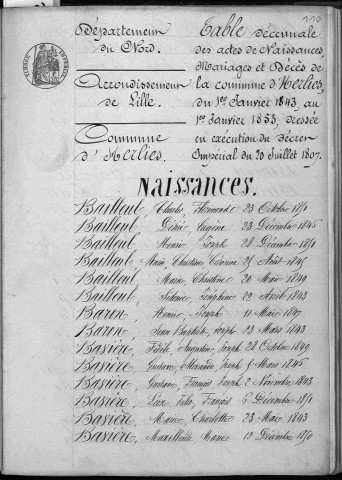 110
Département
du Nord.
Arrondissement
de Lille.
Commune
d'Herlies.
Table décennale
des actes de Naissances,
Mariages et Décès de
la commune d'Herlies,
du 1er Janvier 1843, au
1er Janvier 1853, dressée
en exécution du décret
Impérial du 20 Juillet 1807.
Naissances.
Bailleul, Charles 23 Octobre 1851
Bailleul, Désiré Eugène 23 Décembre 1845
Bailleul, Henri Joseph 28 Décembre 1851
Bailleul, Marie Christine Août 1845
Bailleul, Marie Christine 20 Mai 1849
Bailleul, Joséphine 22 Avril 1843
Barin, Joseph 11 Mai 1849
Barin, Jean Baptiste Joseph 23 Mars 1843
Basière, Fidèle Augustin Joseph 28 Octobre 1849
Basière, Gustave Alexandre Joseph Mars 1846
Basière, Gustave François Joseph 2 Novembre 1843
Basière, François 6 Décembre 1851
Basière, Marie Charlotte 23 Mai 1843
Basière, Marie 13 Décembre 1850